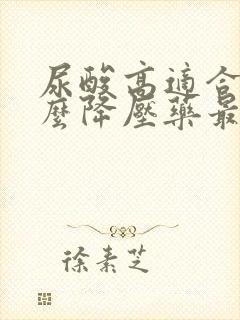 尿酸高適合
麼降壓藥最
徐素芝